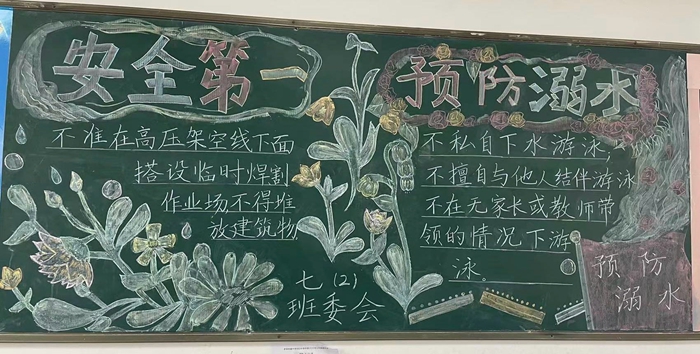 安全第一
不准在高压架空线下面
搭设临时焊割
作业场不得堆
放建筑物
七(2)
班委会
预防溺水
不私自下水游泳,
不擅自与他人结伴游泳
不在无家长或教师带
领的情况下游
泳
预防
溺水